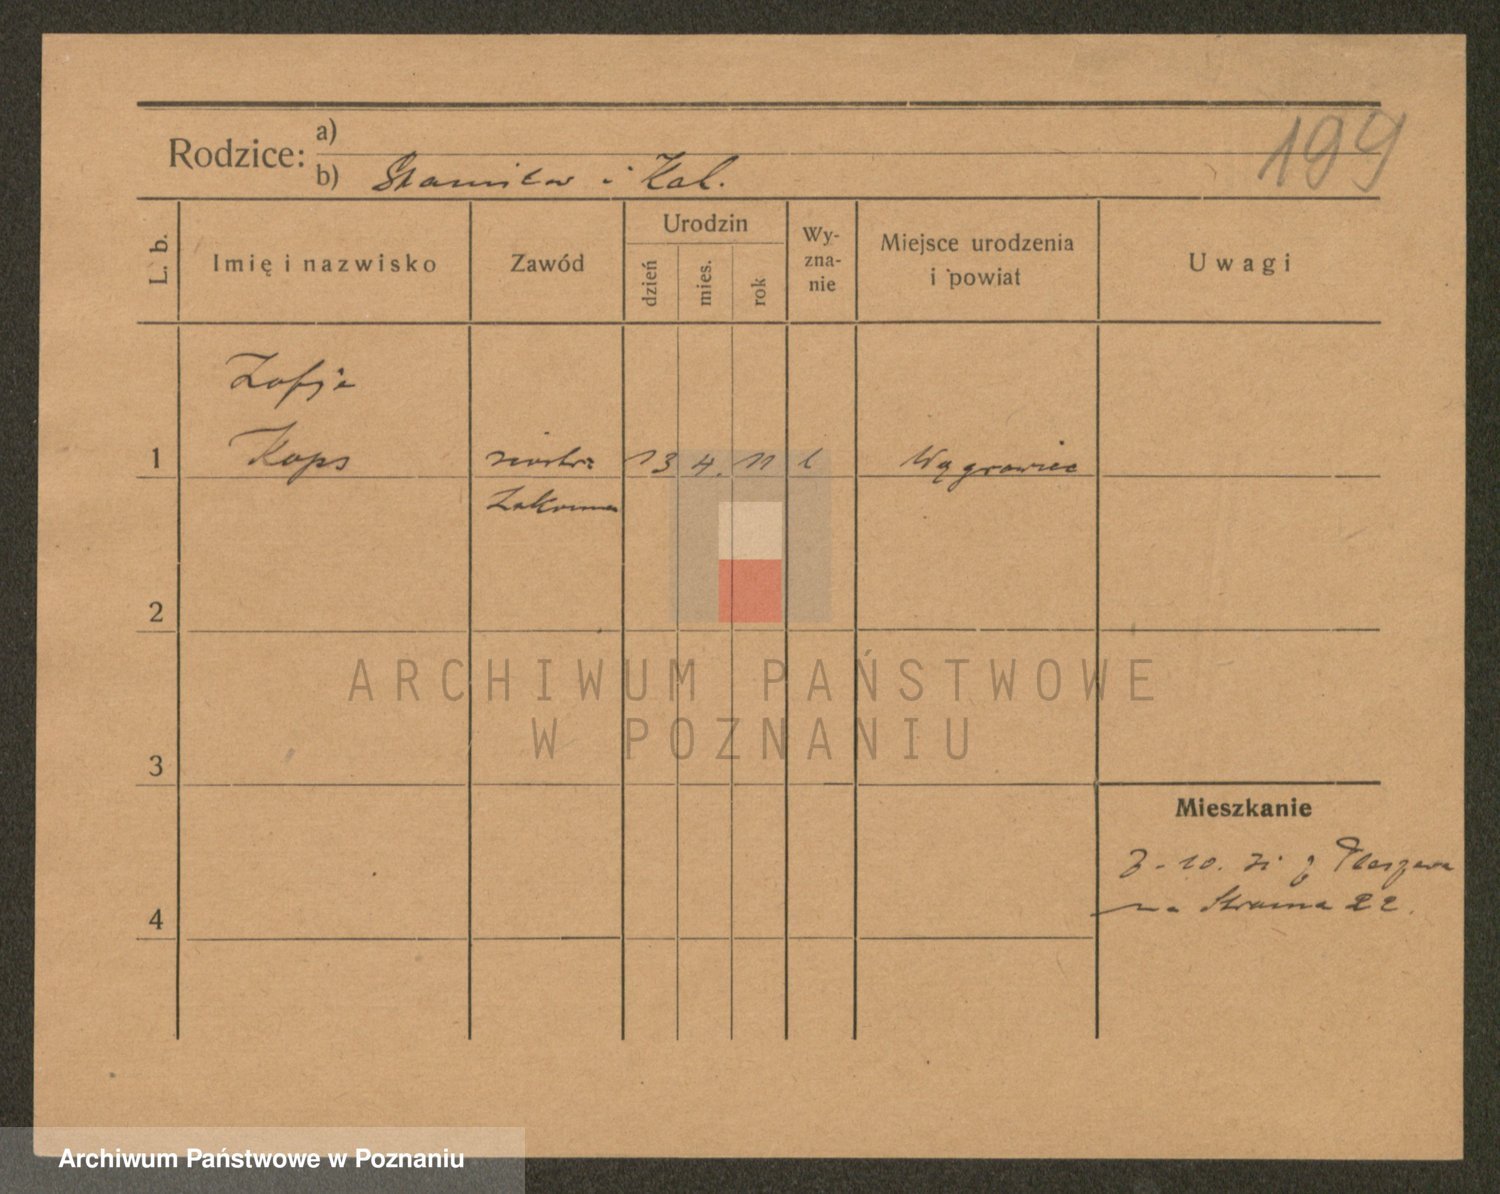 199
Rodzice: a)
b) Stanisław i Kat.
L. b.
Imię i nazwisko
Zawód
Urodzin
dzień
mies.
rok
Wy-
zna-
nie
Miejsce urodzenia
i powiat
Uwagi
Zofja
1 Kaps siostra 13 4. 11 Wągrowiec
Zakonna
2
ARCHIWUM PAŃSTWOWE
W POZNANIU
3
Mieszkanie
3-10. 31 z
na 22.
4
Archiwum Państwowe w Poznaniu